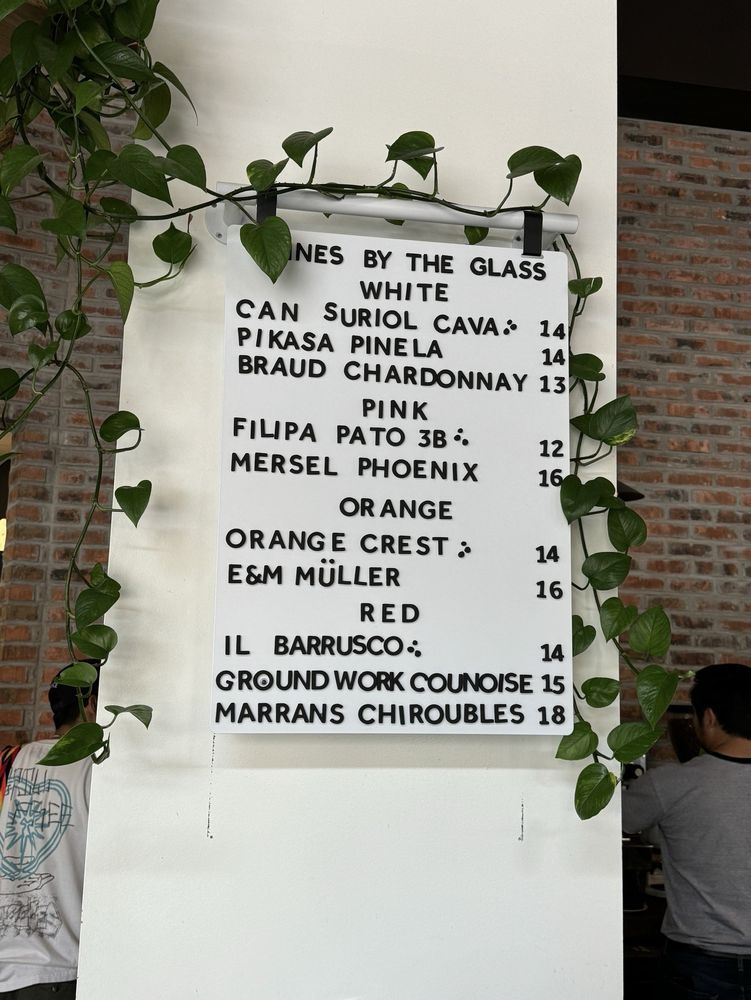 INES BY THE GLASS
WHITE
CAN SURIOL CAVA 14
PIKASA PINELA 14
BRAUD CHARDONNAY 13
PINK
FILIPA PATO 3B 12
MERSEL PHOENIX 16
ORANGE
ORANGE CREST 14
E&M MÜLLER 16
RED
IL BARRUSCO 14
GROUNDWORK COUNOISE 15
MARRANS CHIROUBLES 18